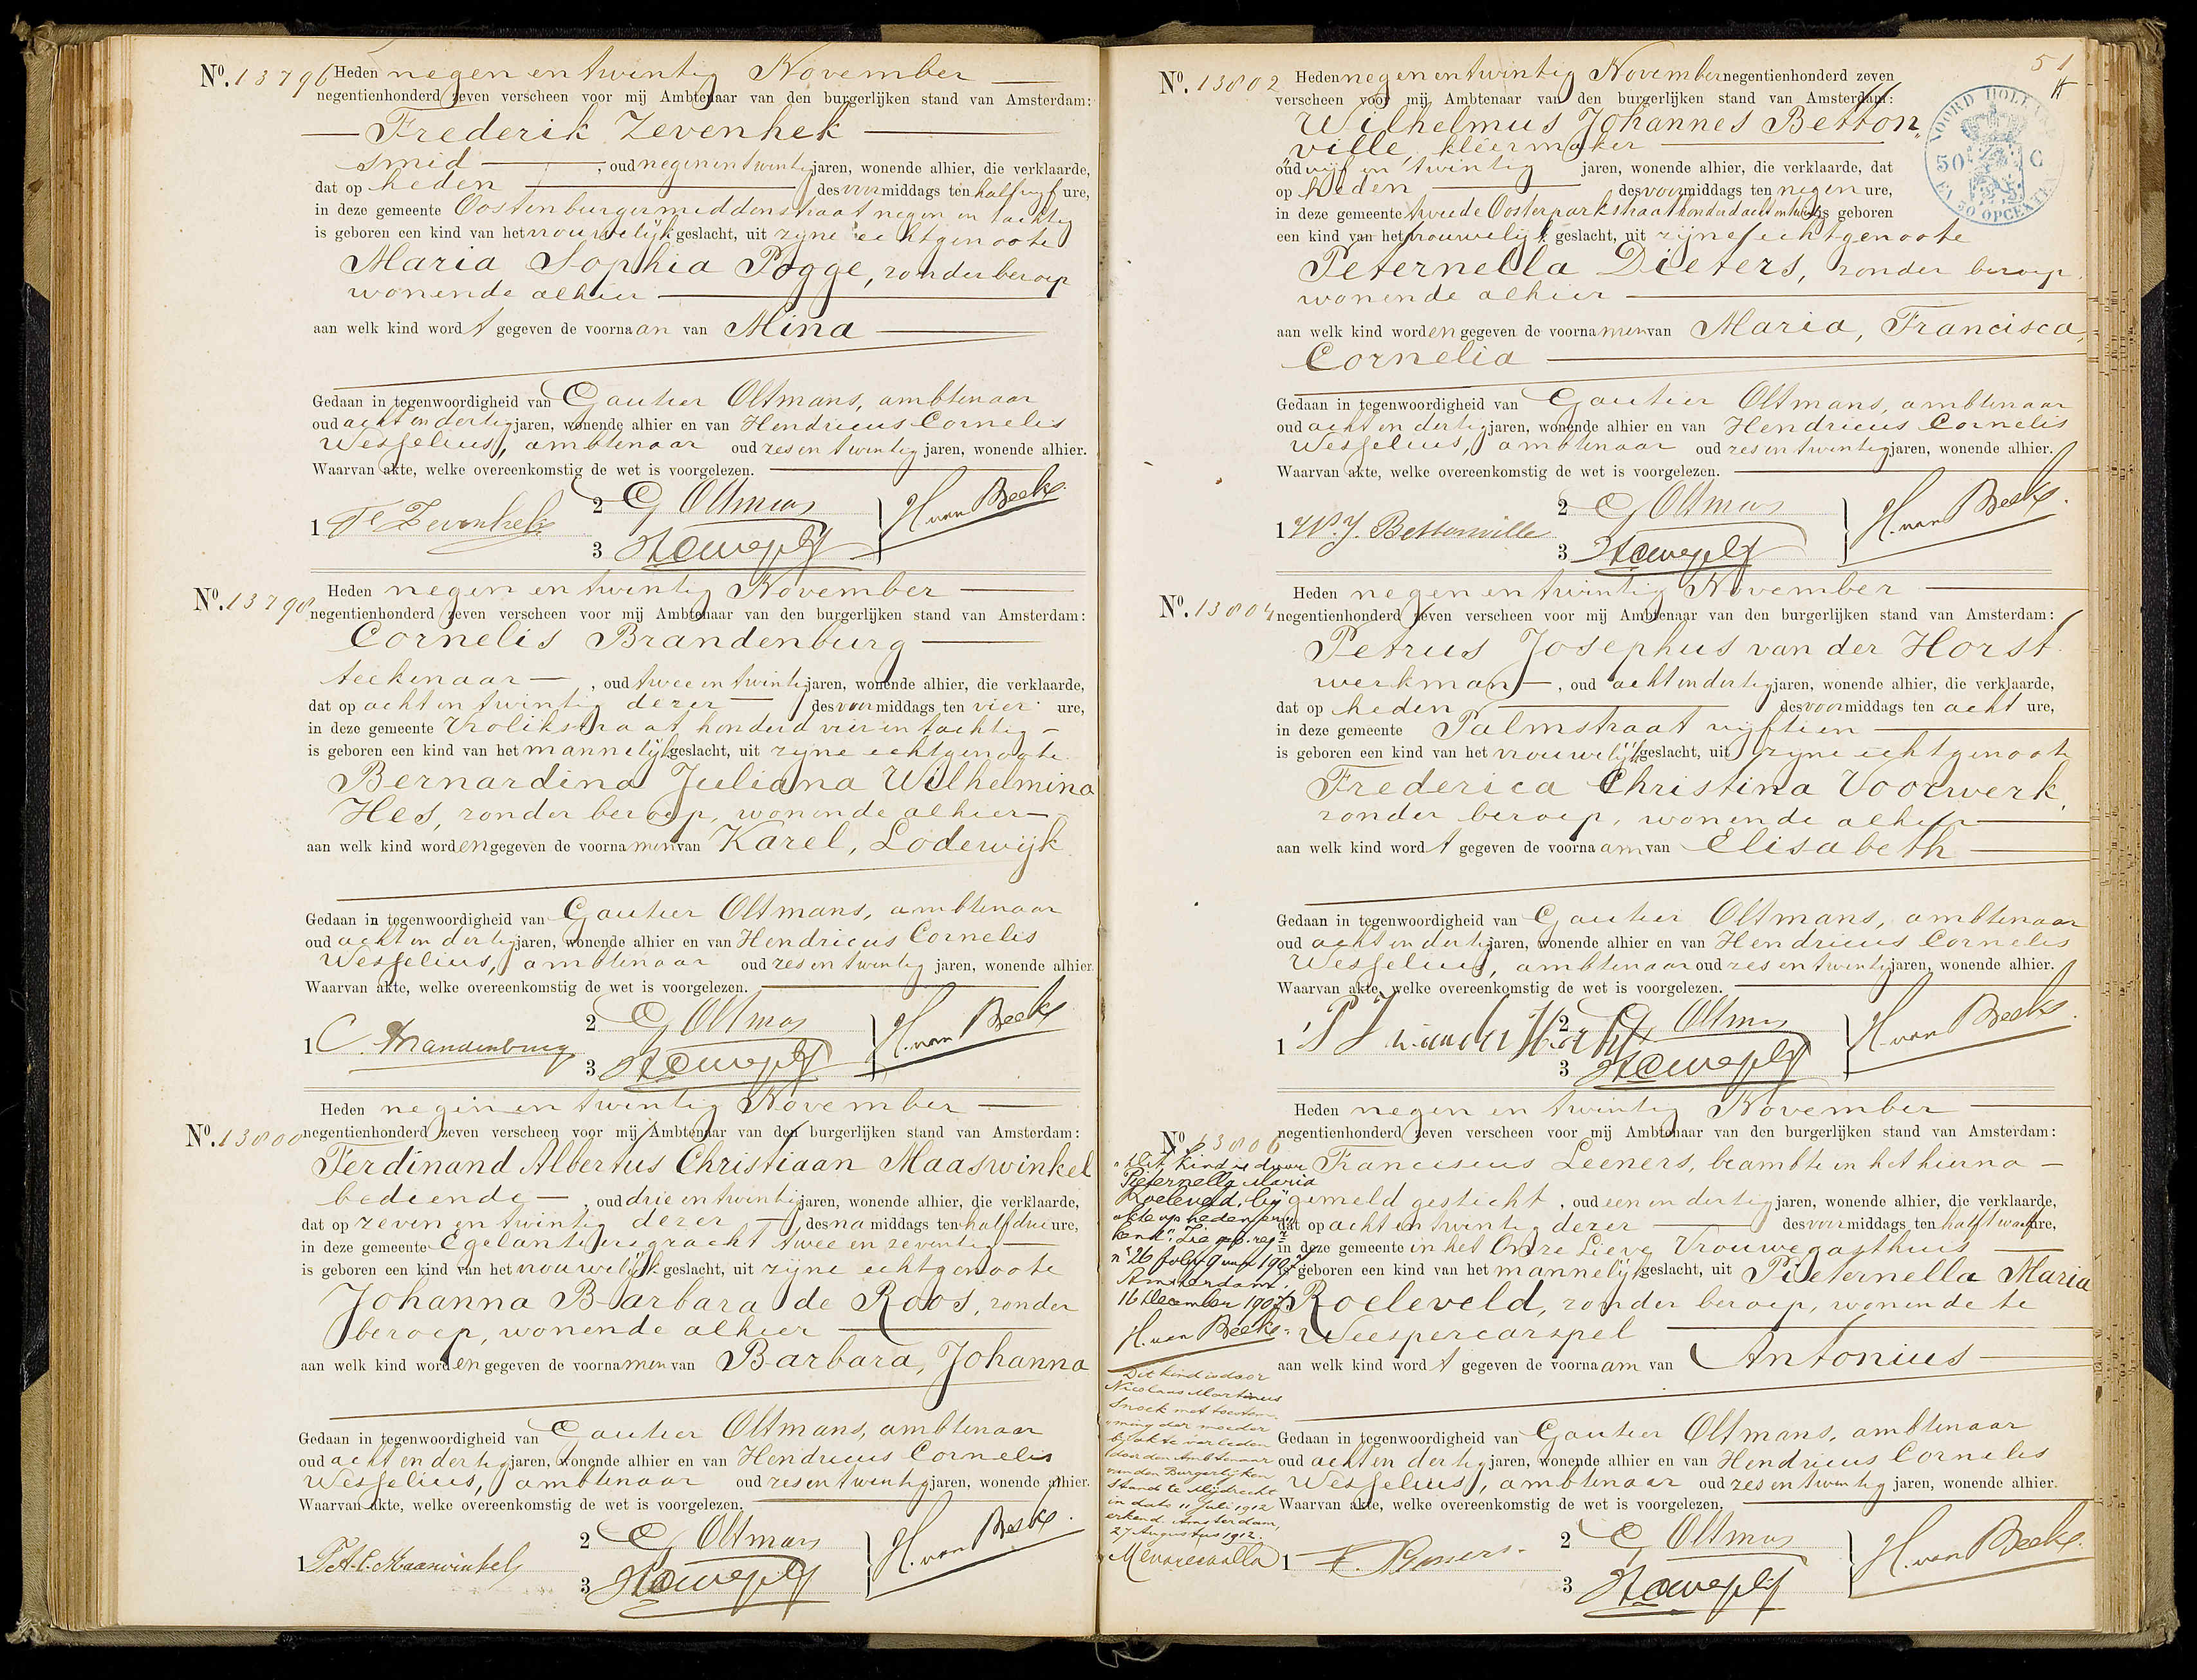 No. 13796 Heden negen en twintig November
negentienhonderd zeven verscheen voor mij Ambtenaar van den burgerlijken stand van Amsterdam:
Frederik Zevenhek
smid , oud negen en twintig jaren, wonende alhier, die verklaarde,
dat op heden des voormiddags ten half vijf ure,
in deze gemeente Oostenburgermiddenstraat negen en tachtig
is geboren een kind van het vrouwelijk geslacht, uit zijne echtgenoote
Maria Sophia Pogge, zonder beroep
wonende alhier
aan welk kind wordt gegeven de voornaam van Mina
Gedaan in tegenwoordigheid van Gautier Oltmans, ambtenaar
oud acht en dertig jaren, wonende alhier en van Hendricus Cornelis
Wesselius, ambtenaar oud zes en twintig jaren, wonende alhier.
Waarvan akte, welke overeenkomstig de wet is voorgelezen.
1 Fr Zevenhek 2 G Oltmans H. van Beek
3
No. 13798 Heden negen en twintig November
negentienhonderd zeven verscheen voor mij Ambtenaar van den burgerlijken stand van Amsterdam:
Cornelis Brandenburg
teekenaar , oud twee en twintig jaren, wonende alhier, die verklaarde,
dat op acht en twintig dezer des voormiddags ten vier ure,
in deze gemeente Vrolikstraat honderd vier en tachtig
is geboren een kind van het mannelijk geslacht, uit zijne echtgenoote
Bernardina Juliana Wilhelmina
Hes, zonder beroep, wonende alhier
aan welk kind worden gegeven de voornamen van Karel, Lodewijk
Gedaan in tegenwoordigheid van Gautier Oltmans, ambtenaar
oud acht en dertig jaren, wonende alhier en van Hendricus Cornelis
Wesselius, ambtenaar oud zes en twintig jaren, wonende alhier.
Waarvan akte, welke overeenkomstig de wet is voorgelezen.
1 C. Brandenburg 2 G Oltmans H. van Beek
3
Heden negen en twintig November
No. 13800 negentienhonderd zeven verscheen voor mij Ambtenaar van den burgerlijken stand van Amsterdam:
Ferdinand Albertus Christiaan Maaswinkel
bediende , oud drie en twintig jaren, wonende alhier, die verklaarde,
dat op zeven en twintig dezer des namiddags ten half drie ure,
in deze gemeente Egelantiersgracht twee en zeventig
is geboren een kind van het vrouwelijk geslacht, uit zijne echtgenoote
Johanna Barbara de Roos, zonder
beroep, wonende alhier
aan welk kind worden gegeven de voornamen van Barbara, Johanna
Gedaan in tegenwoordigheid van Gautier Oltmans, ambtenaar
oud acht en dertig jaren, wonende alhier en van Hendricus Cornelis
Wesselius, ambtenaar oud zes en twintig jaren, wonende alhier.
Waarvan akte, welke overeenkomstig de wet is voorgelezen.
1 F.A.C. Maaswinkel 2 G Oltmans H. van Beek
3
51
No. 13802 Heden negen en twintig November negentienhonderd zeven
verscheen voor mij Ambtenaar van den burgerlijken stand van Amsterdam:
NOORD HOLLAND
50 C
EN 50 OPCENTEN
Wilhelmus Johannes Betton„
„ville, kleermaker
oud vijf en twintig jaren, wonende alhier, die verklaarde, dat
op heden des voormiddags ten negen ure,
in deze gemeente tweede Oosterparkstraat honderd acht en is geboren
een kind van het vrouwelijk geslacht, uit zijne echtgenoote
Peternella Dieters, zonder beroep,
wonende alhier
aan welk kind worden gegeven de voornamen van Maria, Francisca,
Cornelia
Gedaan in tegenwoordigheid van Gautier Oltmans, ambtenaar
oud acht en dertig jaren, wonende alhier en van Hendricus Cornelis
Wesselius, ambtenaar oud zes en twintig jaren, wonende alhier.
Waarvan akte, welke overeenkomstig de wet is voorgelezen.
1 W.J. Bettonville 2 G Oltmans H. van Beek
3
Heden negen en twintig November
No. 13804 negentienhonderd zeven verscheen voor mij Ambtenaar van den burgerlijken stand van Amsterdam:
Petrus Josephus van der Horst
werkman , oud acht en dertig jaren, wonende alhier, die verklaarde,
dat op heden des voormiddags ten acht ure,
in deze gemeente Palmstraat vijftien
is geboren een kind van het vrouwelijk geslacht, uit zijne echtgenoote
Frederica Christina Voorwerk,
zonder beroep, wonende alhier
aan welk kind wordt gegeven de voornaam van Elisabeth
Gedaan in tegenwoordigheid van Gautier Oltmans, ambtenaar
oud acht en dertig jaren, wonende alhier en van Hendricus Cornelis
Wesselius, ambtenaar oud zes en twintig jaren, wonende alhier.
Waarvan akte, welke overeenkomstig de wet is voorgelezen.
1 P J van der Horst 2 G Oltmans H. van Beek
3
Heden negen en twintig November
No. 13806 negentienhonderd zeven verscheen voor mij Ambtenaar van den burgerlijken stand van Amsterdam:
Franciscus Leeners, beambte in het hierna
gemeld gesticht , oud een en dertig jaren, wonende alhier, die verklaarde,
dat op acht en twintig dezer des voormiddags ten half twaalf ure,
in deze gemeente in het Onze Lieve Vrouwegasthuis
is geboren een kind van het mannelijk geslacht, uit Pieternella Maria
Roeleveld, zonder beroep, wonende te
Weespercarspel
aan welk kind wordt gegeven de voornaam van Antonius
Gedaan in tegenwoordigheid van Gautier Oltmans, ambtenaar
oud acht en dertig jaren, wonende alhier en van Hendricus Cornelis
Wesselius, ambtenaar oud zes en twintig jaren, wonende alhier.
Waarvan akte, welke overeenkomstig de wet is voorgelezen.
1 2 G Oltmans H. van Beek
3
„Dit kind is door
Pieternella Maria
Roeleveld, bij
akte op heden er„
kend". Zie geb. regr
no 26 folio 9 van 1907
Amsterdam,
16 December 1907.
H. van Beek
Dit kind is door
Nicolaas Martinus
Snoek met toestem„
ming der moeder
bij akte verleden
door den Ambtenaar
van den Burgerlijken
Stand te Mijdrecht
in dato 11 Juli 1912
erkend. Amsterdam,
27 Augustus 1912.